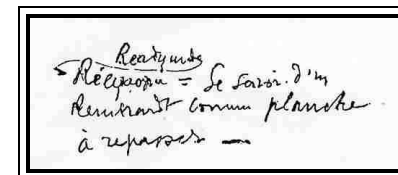 Readymade
Réciproque = Se servir d'un
Rembrandt comme planche
à repasser —